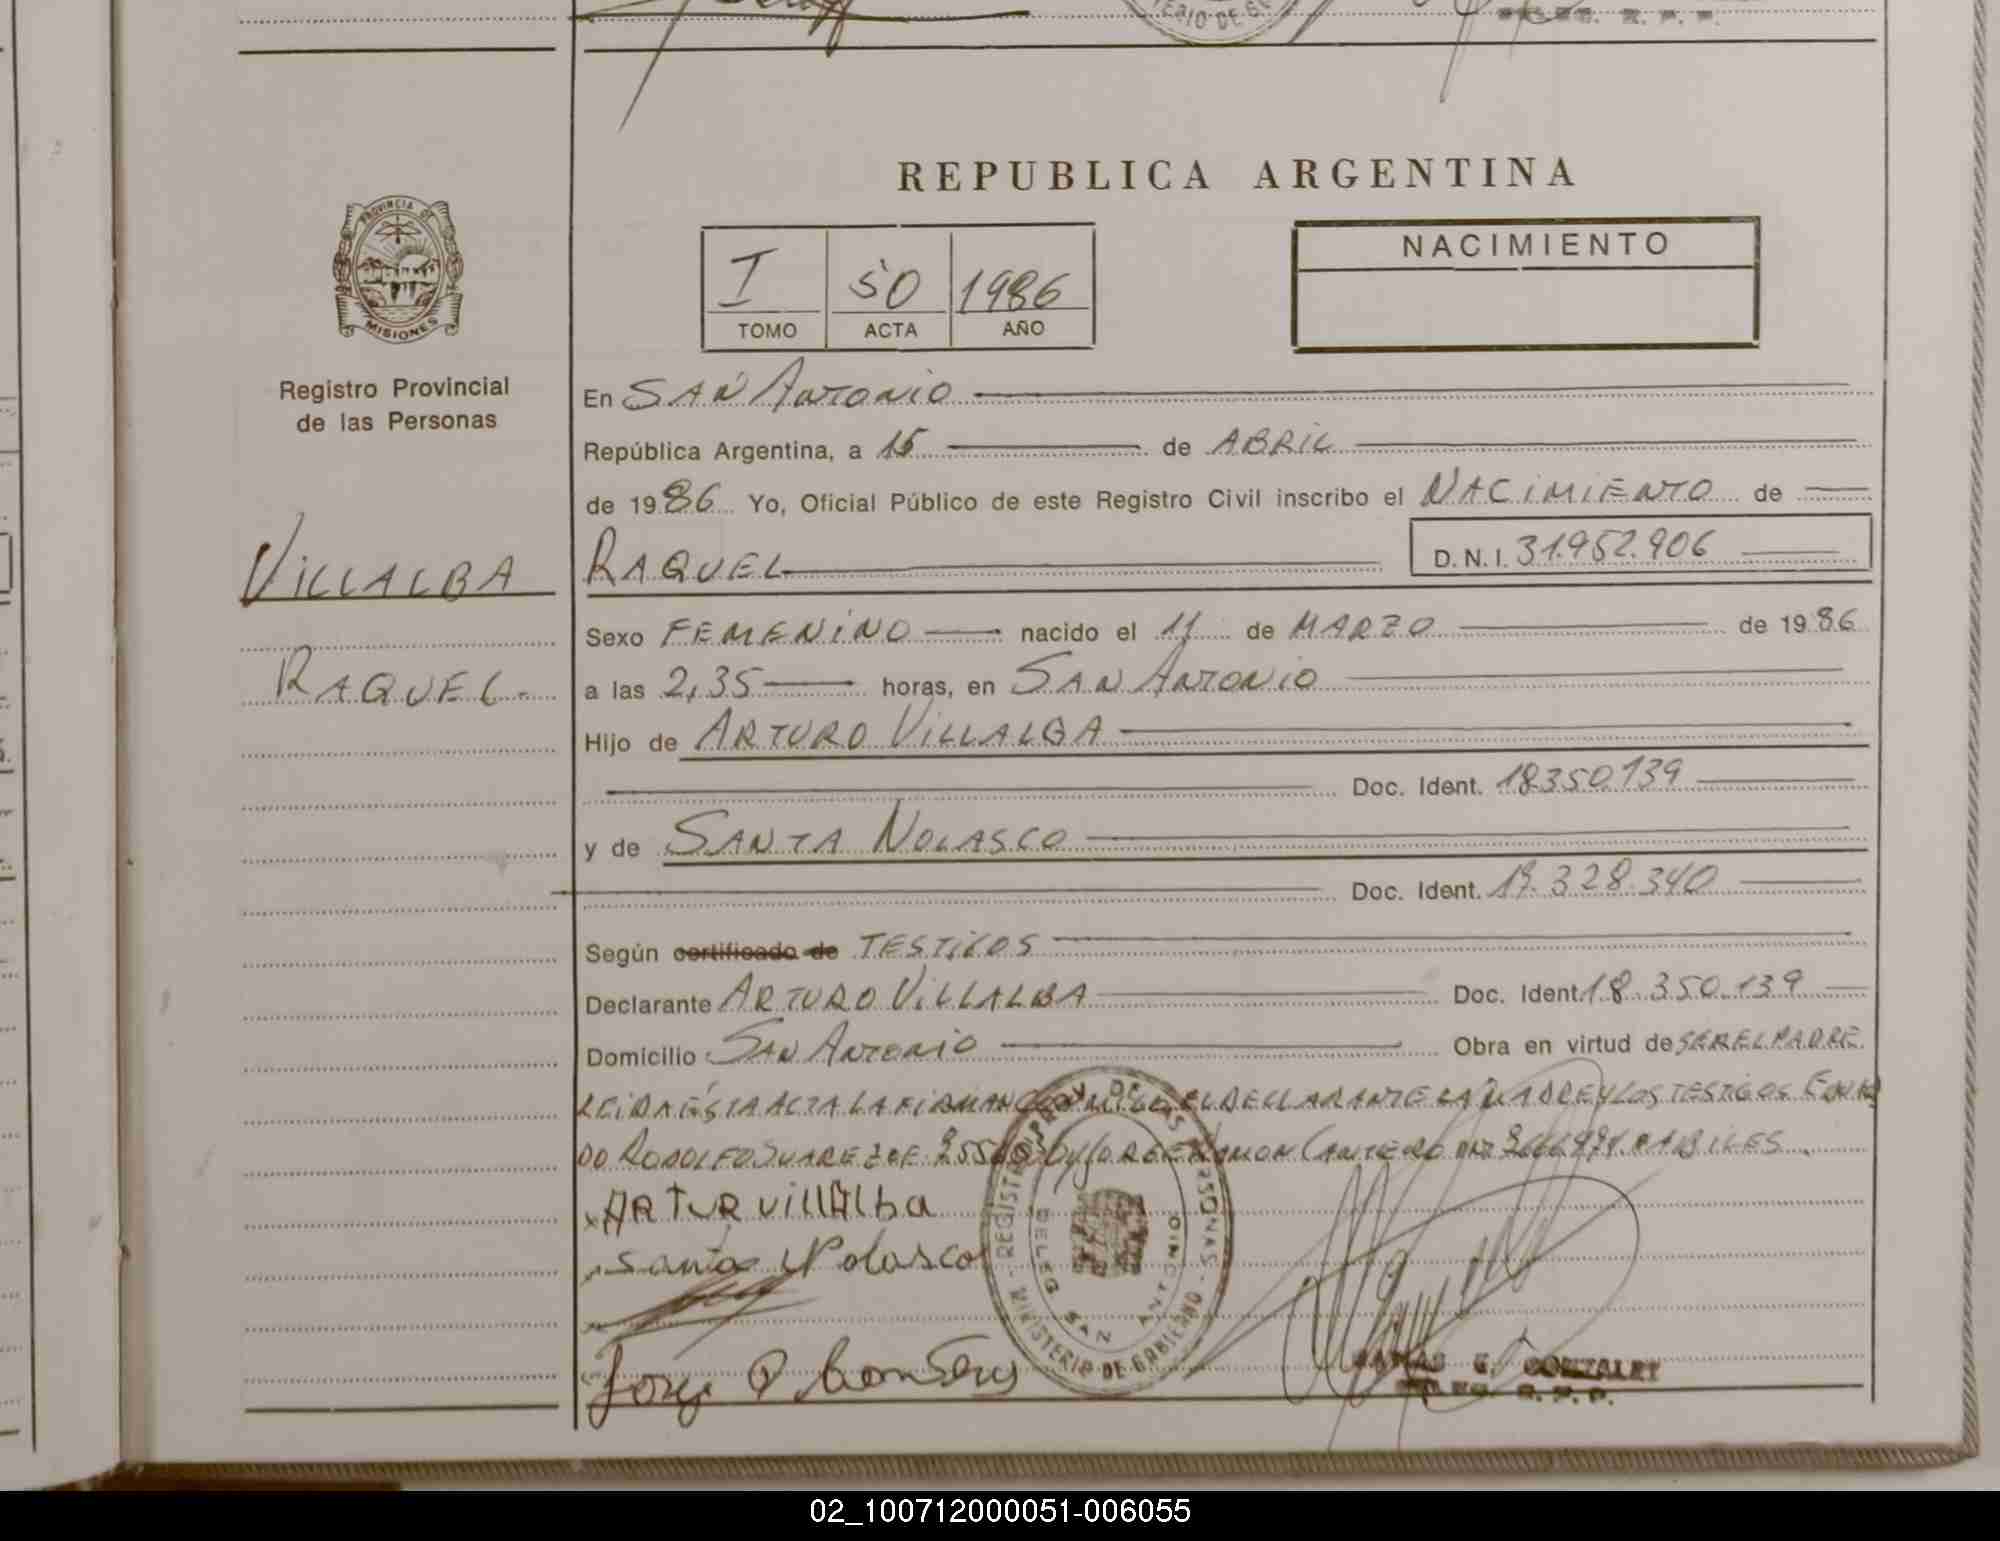 REPUBLICA ARGENTINA
PROVINCIA DE
MISIONES
Registro Provincial
de las Personas
VILLALBA
RAQUEL.
I 50 1986
TOMO ACTA AÑO
NACIMIENTO
En SAN ANTONIO
República Argentina, a 15 de ABRIL
de 1986 Yo, Oficial Público de este Registro Civil inscribo el NACIMIENTO de
RAQUEL D.N.I. 31.952.906
Sexo FEMENINO nacido el 11 de MARZO de 1986
a las 2,35 horas, en SAN ANTONIO
Hijo de ARTURO VILLALBA
Doc. Ident. 18350.139
y de SANTA NOLASCO
Doc. Ident. 19.328.340
Según certificado de TESTIGOS
Declarante ARTURO VILLALBA Doc. Ident. 18.350.139
Domicilio SAN ANTONIO Obra en virtud de SER EL PADRE.
LEIDA ESTA ACTA LA FIRMAN CONMIGO EL DECLARANTE LA MADRE Y LOS TESTIGOS
DO RODOLFO SUAREZ Y JORGE RAMON CANTERO HABILES.
ARTUR VillAlba
Santa Nolasco
REGISTRO PROV. DE LAS PERSONAS - MINISTERIO DE GOBIERNO
DELEG. SAN ANTONIO
C. GONZALEZ
R. P. P.
02_100712000051-006055